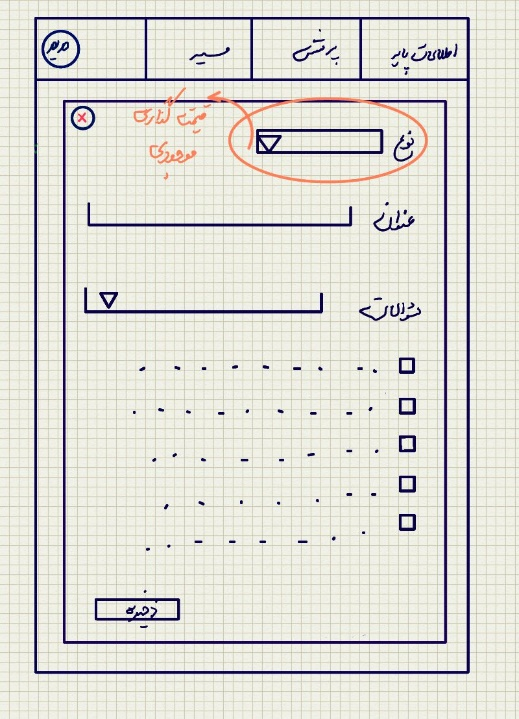 اطلاعات پایه
پرسش
مسیر
مدیر
قیمت گذاری
نوع
موجودی
عنوان
سوالات
ذخیره